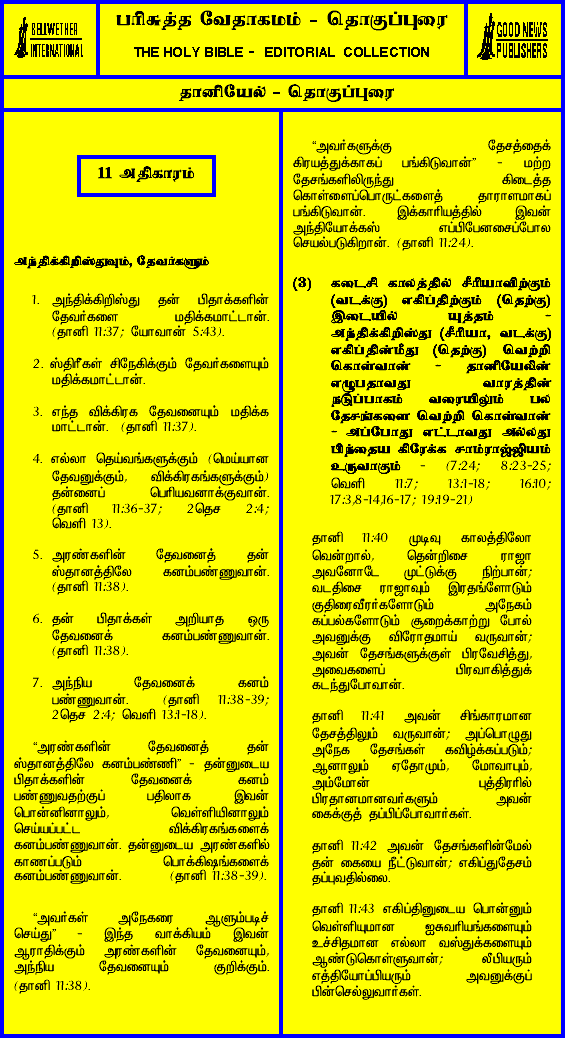 BELLWETHER
INTERNATIONAL
பரிசுத்த வேதாகமம் - தொகுப்புரை
THE HOLY BIBLE - EDITORIAL COLLECTION
GOOD NEWS
PUBLISHERS
தானியேல் - தொகுப்புரை
11 அதிகாரம்
அந்திக்கிறிஸ்துவும், தேவர்களும்
1. அந்திக்கிறிஸ்து தன் பிதாக்களின்
தேவர்களை மதிக்கமாட்டான்.
(தானி 11:37; யோவான் 5:43).
2. ஸ்திரீகள் சிநேகிக்கும் தேவர்களையும்
மதிக்கமாட்டான்.
3. எந்த விக்கிரக தேவனையும் மதிக்க
மாட்டான். (தானி 11:37).
4. எல்லா தெய்வங்களுக்கும் (மெய்யான
தேவனுக்கும், விக்கிரகங்களுக்கும்)
தன்னைப் பெரியவனாக்குவான்.
(தானி 11:36-37; 2தெச 2:4;
வெளி 13).
5. அரண்களின் தேவனைத் தன்
ஸ்தானத்திலே கனம்பண்ணுவான்.
(தானி 11:38).
6. தன் பிதாக்கள் அறியாத ஒரு
தேவனைக் கனம்பண்ணுவான்.
(தானி 11:38).
7. அந்நிய தேவனைக் கனம்
பண்ணுவான். (தானி 11:38-39;
2தெச 2:4; வெளி 13:1-18).
“அரண்களின் தேவனைத் தன்
ஸ்தானத்திலே கனம்பண்ணி” - தன்னுடைய
பிதாக்களின் தேவனைக் கனம்
பண்ணுவதற்குப் பதிலாக இவன்
பொன்னினாலும், வெள்ளியினாலும்
செய்யப்பட்ட விக்கிரகங்களைக்
கனம்பண்ணுவான். தன்னுடைய அரண்களில்
காணப்படும் பொக்கிஷங்களைக்
கனம்பண்ணுவான். (தானி 11:38-39).
“அவர்கள் அநேகரை ஆளும்படிச்
செய்து” - இந்த வாக்கியம் இவன்
ஆராதிக்கும் அரண்களின் தேவனையும்,
அந்நிய தேவனையும் குறிக்கும்.
(தானி 11:38).
“அவர்களுக்கு தேசத்தைக்
கிரயத்துக்காகப் பங்கிடுவான்” - மற்ற
தேசங்களிலிருந்து கிடைத்த
கொள்ளைப்பொருட்களைத் தாராளமாகப்
பங்கிடுவான். இக்காரியத்தில் இவன்
அந்தியோக்கஸ் எப்பிபேனசைப்போல
செயல்படுகிறான். (தானி 11:24).
(3) கடைசி காலத்தில் சீரியாவிற்கும்
(வடக்கு) எகிப்திற்கும் (தெற்கு)
இடையில் யுத்தம் -
அந்திக்கிறிஸ்து (சீரியா, வடக்கு)
எகிப்தின்மீது (தெற்கு) வெற்றி
கொள்வான் - தானியேலின்
எழுபதாவது வாரத்தின்
நடுப்பாகம் வரையிலும் பல
தேசங்களை வெற்றி கொள்வான்
- அப்போது எட்டாவது அல்லது
பிந்தைய கிரேக்க சாம்ராஜ்ஜியம்
உருவாகும் - (7:24; 8:23-25;
வெளி 11:7; 13:1-18; 16:10;
17:3,8-14,16-17; 19:19-21)
தானி 11:40 முடிவு காலத்திலோ
வென்றால், தென்றிசை ராஜா
அவனோடே முட்டுக்கு நிற்பான்;
வடதிசை ராஜாவும் இரதங்களோடும்
குதிரைவீரர்களோடும் அநேகம்
கப்பல்களோடும் சூறைக்காற்று போல்
அவனுக்கு விரோதமாய் வருவான்;
அவன் தேசங்களுக்குள் பிரவேசித்து,
அவைகளைப் பிரவாகித்துக்
கடந்துபோவான்.
தானி 11:41 அவன் சிங்காரமான
தேசத்திலும் வருவான்; அப்பொழுது
அநேக தேசங்கள் கவிழ்க்கப்படும்;
ஆனாலும் ஏதோமும், மோவாபும்,
அம்மோன் புத்திரரில்
பிரதானமானவர்களும் அவன்
கைக்குத் தப்பிப்போவார்கள்.
தானி 11:42 அவன் தேசங்களின்மேல்
தன் கையை நீட்டுவான்; எகிப்துதேசம்
தப்புவதில்லை.
தானி 11:43 எகிப்தினுடைய பொன்னும்
வெள்ளியுமான ஐசுவரியங்களையும்
உச்சிதமான எல்லா வஸ்துக்களையும்
ஆண்டுகொள்ளுவான்; லீபியரும்
எத்தியோப்பியரும் அவனுக்குப்
பின்செல்லுவார்கள்.